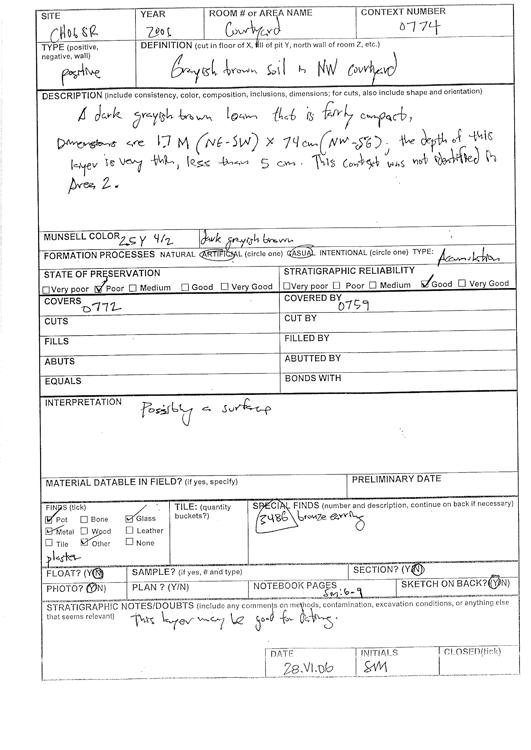 SITE YEAR ROOM # or AREA NAME CONTEXT NUMBER
CH06SR 2006 Courtyard 0774
TYPE (positive, negative, wall) DEFINITION (cut in floor of X, fill of pit Y, north wall of room Z, etc.)
positive Grayish brown soil in NW courtyard
DESCRIPTION (include consistency, color, composition, inclusions, dimensions; for cuts, also include shape and orientation)
A dark grayish brown loam that is fairly compact,
Dimensions are 1.7 M (NE-SW) x 74cm (NW-SE); the depth of this
layer is very thin, less than 5 cm. This context was not identified in
Area 2.
MUNSELL COLOR 2.5Y 4/2 dark grayish brown
FORMATION PROCESSES NATURAL ARTIFICIAL (circle one) CASUAL INTENTIONAL (circle one) TYPE: Accumulation
STATE OF PRESERVATION STRATIGRAPHIC RELIABILITY
Very poor Poor Medium Good Very Good Very poor Poor Medium Good Very Good
COVERS 0772 COVERED BY 0759
CUTS CUT BY
FILLS FILLED BY
ABUTS ABUTTED BY
EQUALS BONDS WITH
INTERPRETATION Possibly a surface
MATERIAL DATABLE IN FIELD? (if yes, specify) PRELIMINARY DATE
FINDS (tick) TILE: (quantity buckets?) SPECIAL FINDS (number and description, continue on back if necessary)
Pot Bone Glass 3486 bronze earring
Metal Wood Leather
Tile Other None
plaster
FLOAT? (Y/N) SAMPLE? (if yes, # and type) SECTION? (Y/N)
PHOTO? (Y/N) PLAN? (Y/N) NOTEBOOK PAGES SM:6-9 SKETCH ON BACK? (Y/N)
STRATIGRAPHIC NOTES/DOUBTS (include any comments on methods, contamination, excavation conditions, or anything else
that seems relevant) This layer may be good for dating.
DATE INITIALS CLOSED(tick)
28.VI.06 SM